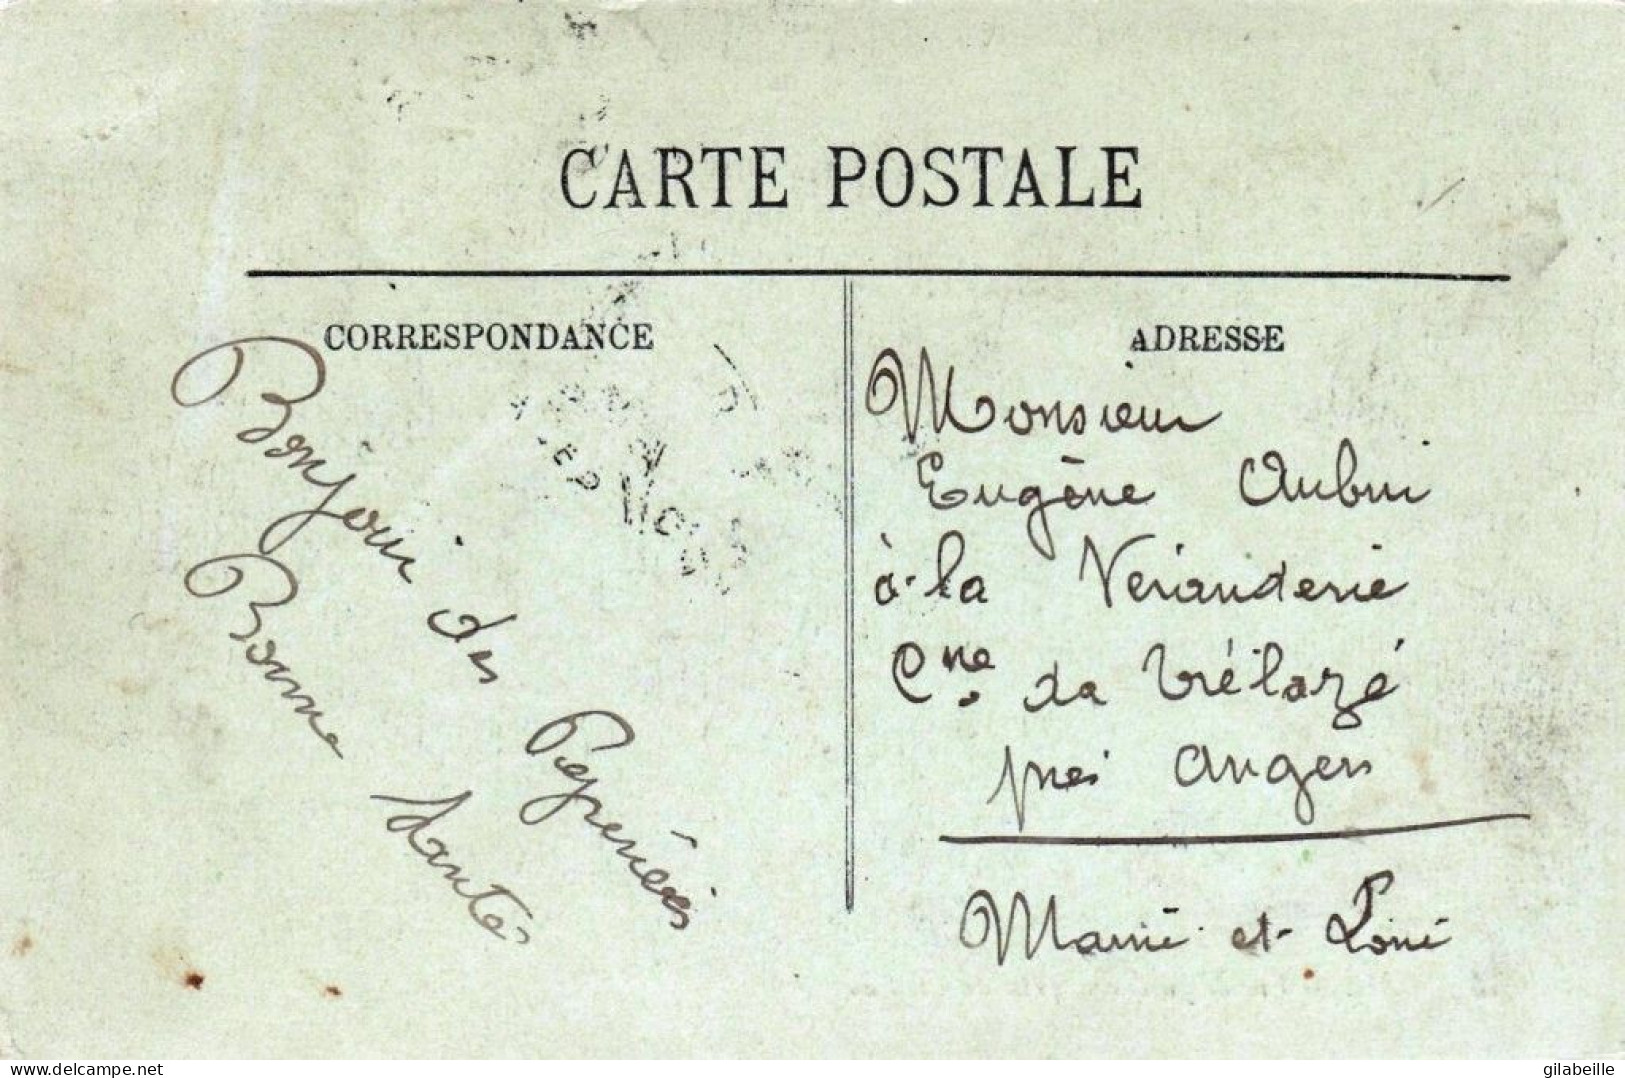 CARTE POSTALE
CORRESPONDANCE
Bonjour des Pyrénées
Bonne Santé
ADRESSE
Monsieur
Eugène Aubin
à la Veranderie
Cne de Trélazé
près Angers
Maine et Loire
www.delcampe.net
gilabeille